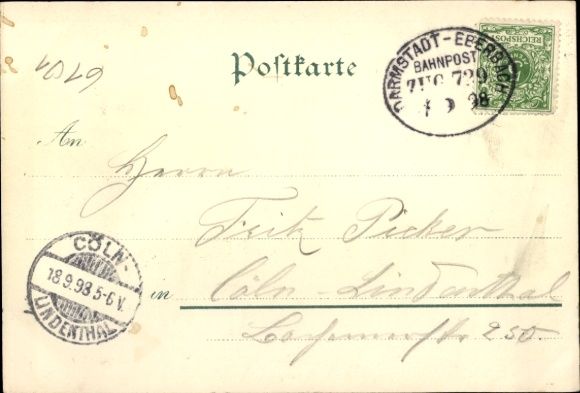 Postkarte
DARMSTADT-EBERBACH
BAHNPOST
ZUG 729
98
REICHSPOST
Am
Herrn
Fritz Picker
in Cöln-Lindenthal
250.
CÖLN-
18.9.98 5-6 V.
LINDENTHAL